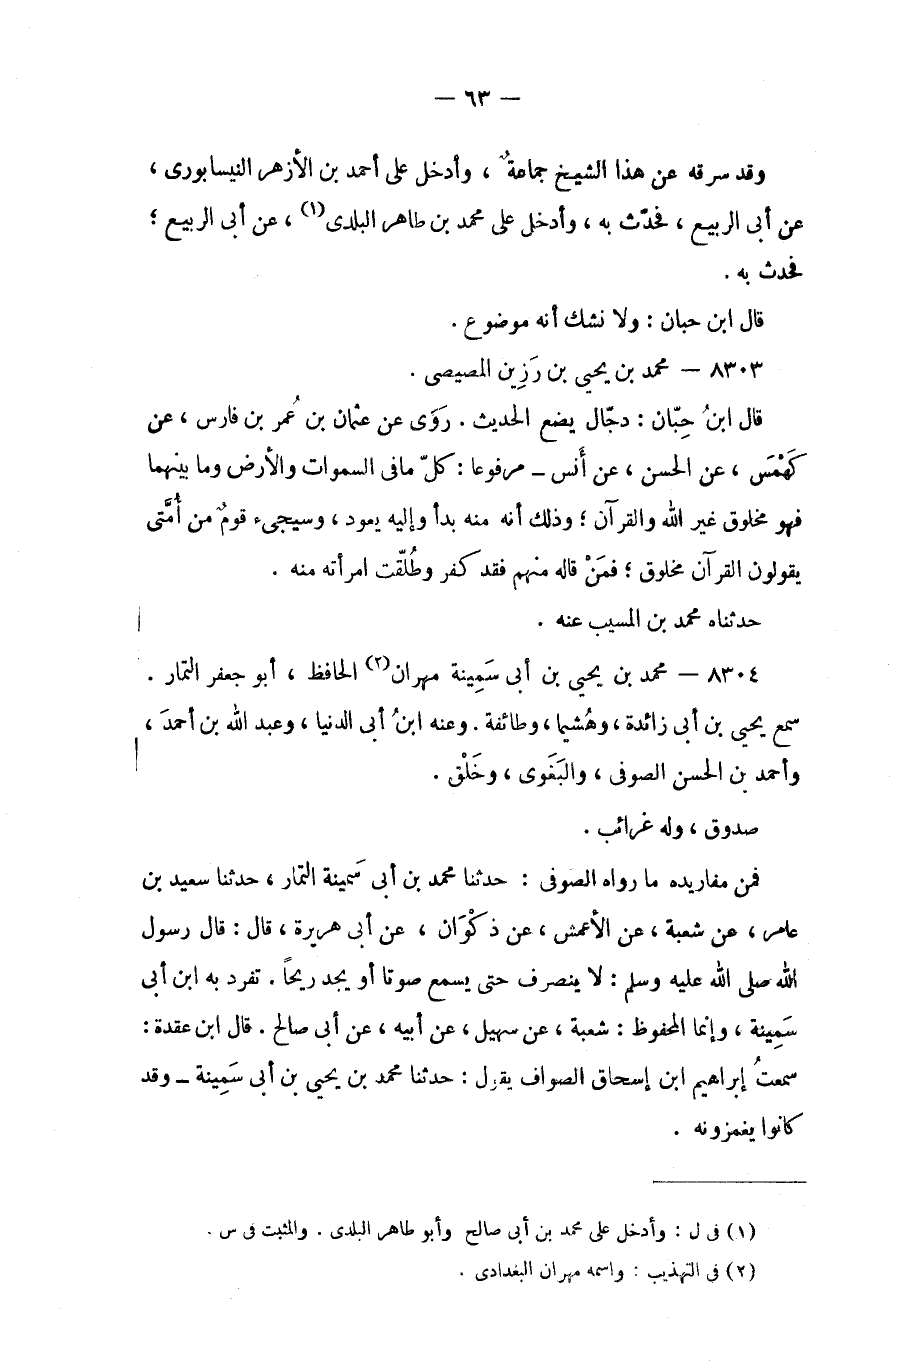 — ٦٣ —
وقد سرقه عن هذا الشيخ جماعةٌ ، وأدخل على أحمد بن الأزهر النيسابورى ،
عن أبى الربيع ، فحدّث به ، وأدخل على محمد بن طاهر البلدى(١) ، عن أبى الربيع ؛
فحدث به .
قال ابن حبان : ولا نشك أنه موضوع .
٨٣٠٣ — محمد بن يحيى بن رَزِين المصيصى .
قال ابنُ حِبّان : دجّال يضع الحديث . رَوَى عن عثمان بن عُمر بن فارس ، عن
كَهْمَس ، عن الحسن ، عن أَنس – مرفوعا : كلّ مافى السموات والأرض وما بينهما
فهو مخلوق غير الله والقرآن ؛ وذلك أنه منه بدأ وإليه يعود ، وسيجىء قومٌ من أُمَّتى
يقولون القرآن مخلوق ؛ فمَنْ قاله منهم فقد كفر وطُلّقت امرأته منه .
حدثناه محمد بن المسيب عنه .
٨٣٠٤ — محمد بن يحيى بن أبى سَمِينة مهران(٢) الحافظ ، أبو جعفر التمار .
سمع يحيى بن أبى زائدة ، وهُشيما ، وطائفة . وعنه ابنُ أبى الدنيا ، وعبد الله بن أحمدَ ،
وأحمد بن الحسن الصوفى ، والبَغَوى ، وخَلْق .
صدوق ، وله غرائب .
فمن مفاريده ما رواه الصوفى : حدثنا محمد بن أبى سَمينة التمار ، حدثنا سعيد بن
عامر ، عن شعبة ، عن الأعمش ، عن ذكْوَان ، عن أبى هريرة ، قال : قال رسول
الله صلى الله عليه وسلم : لا ينصرف حتى يسمع صوتا أو يجد ريحاً . تفرد به ابن أبى
سَمِينة ، وإنما المحفوظ : شعبة ، عن سهيل ، عن أبيه ، عن أبى صالح . قال ابن عقدة :
سمعتُ إبراهيم ابن إسحاق الصواف يقول : حدثنا محمد بن يحيى بن أبى سَمِينة – وقد
كانوا يغمزونه .
(١) فى ل : وأدخل على محمد بن أبى صالح وأبو طاهر البلدى . والمثبت فى س .
(٢) فى التهذيب : واسمه مهران البغدادى .